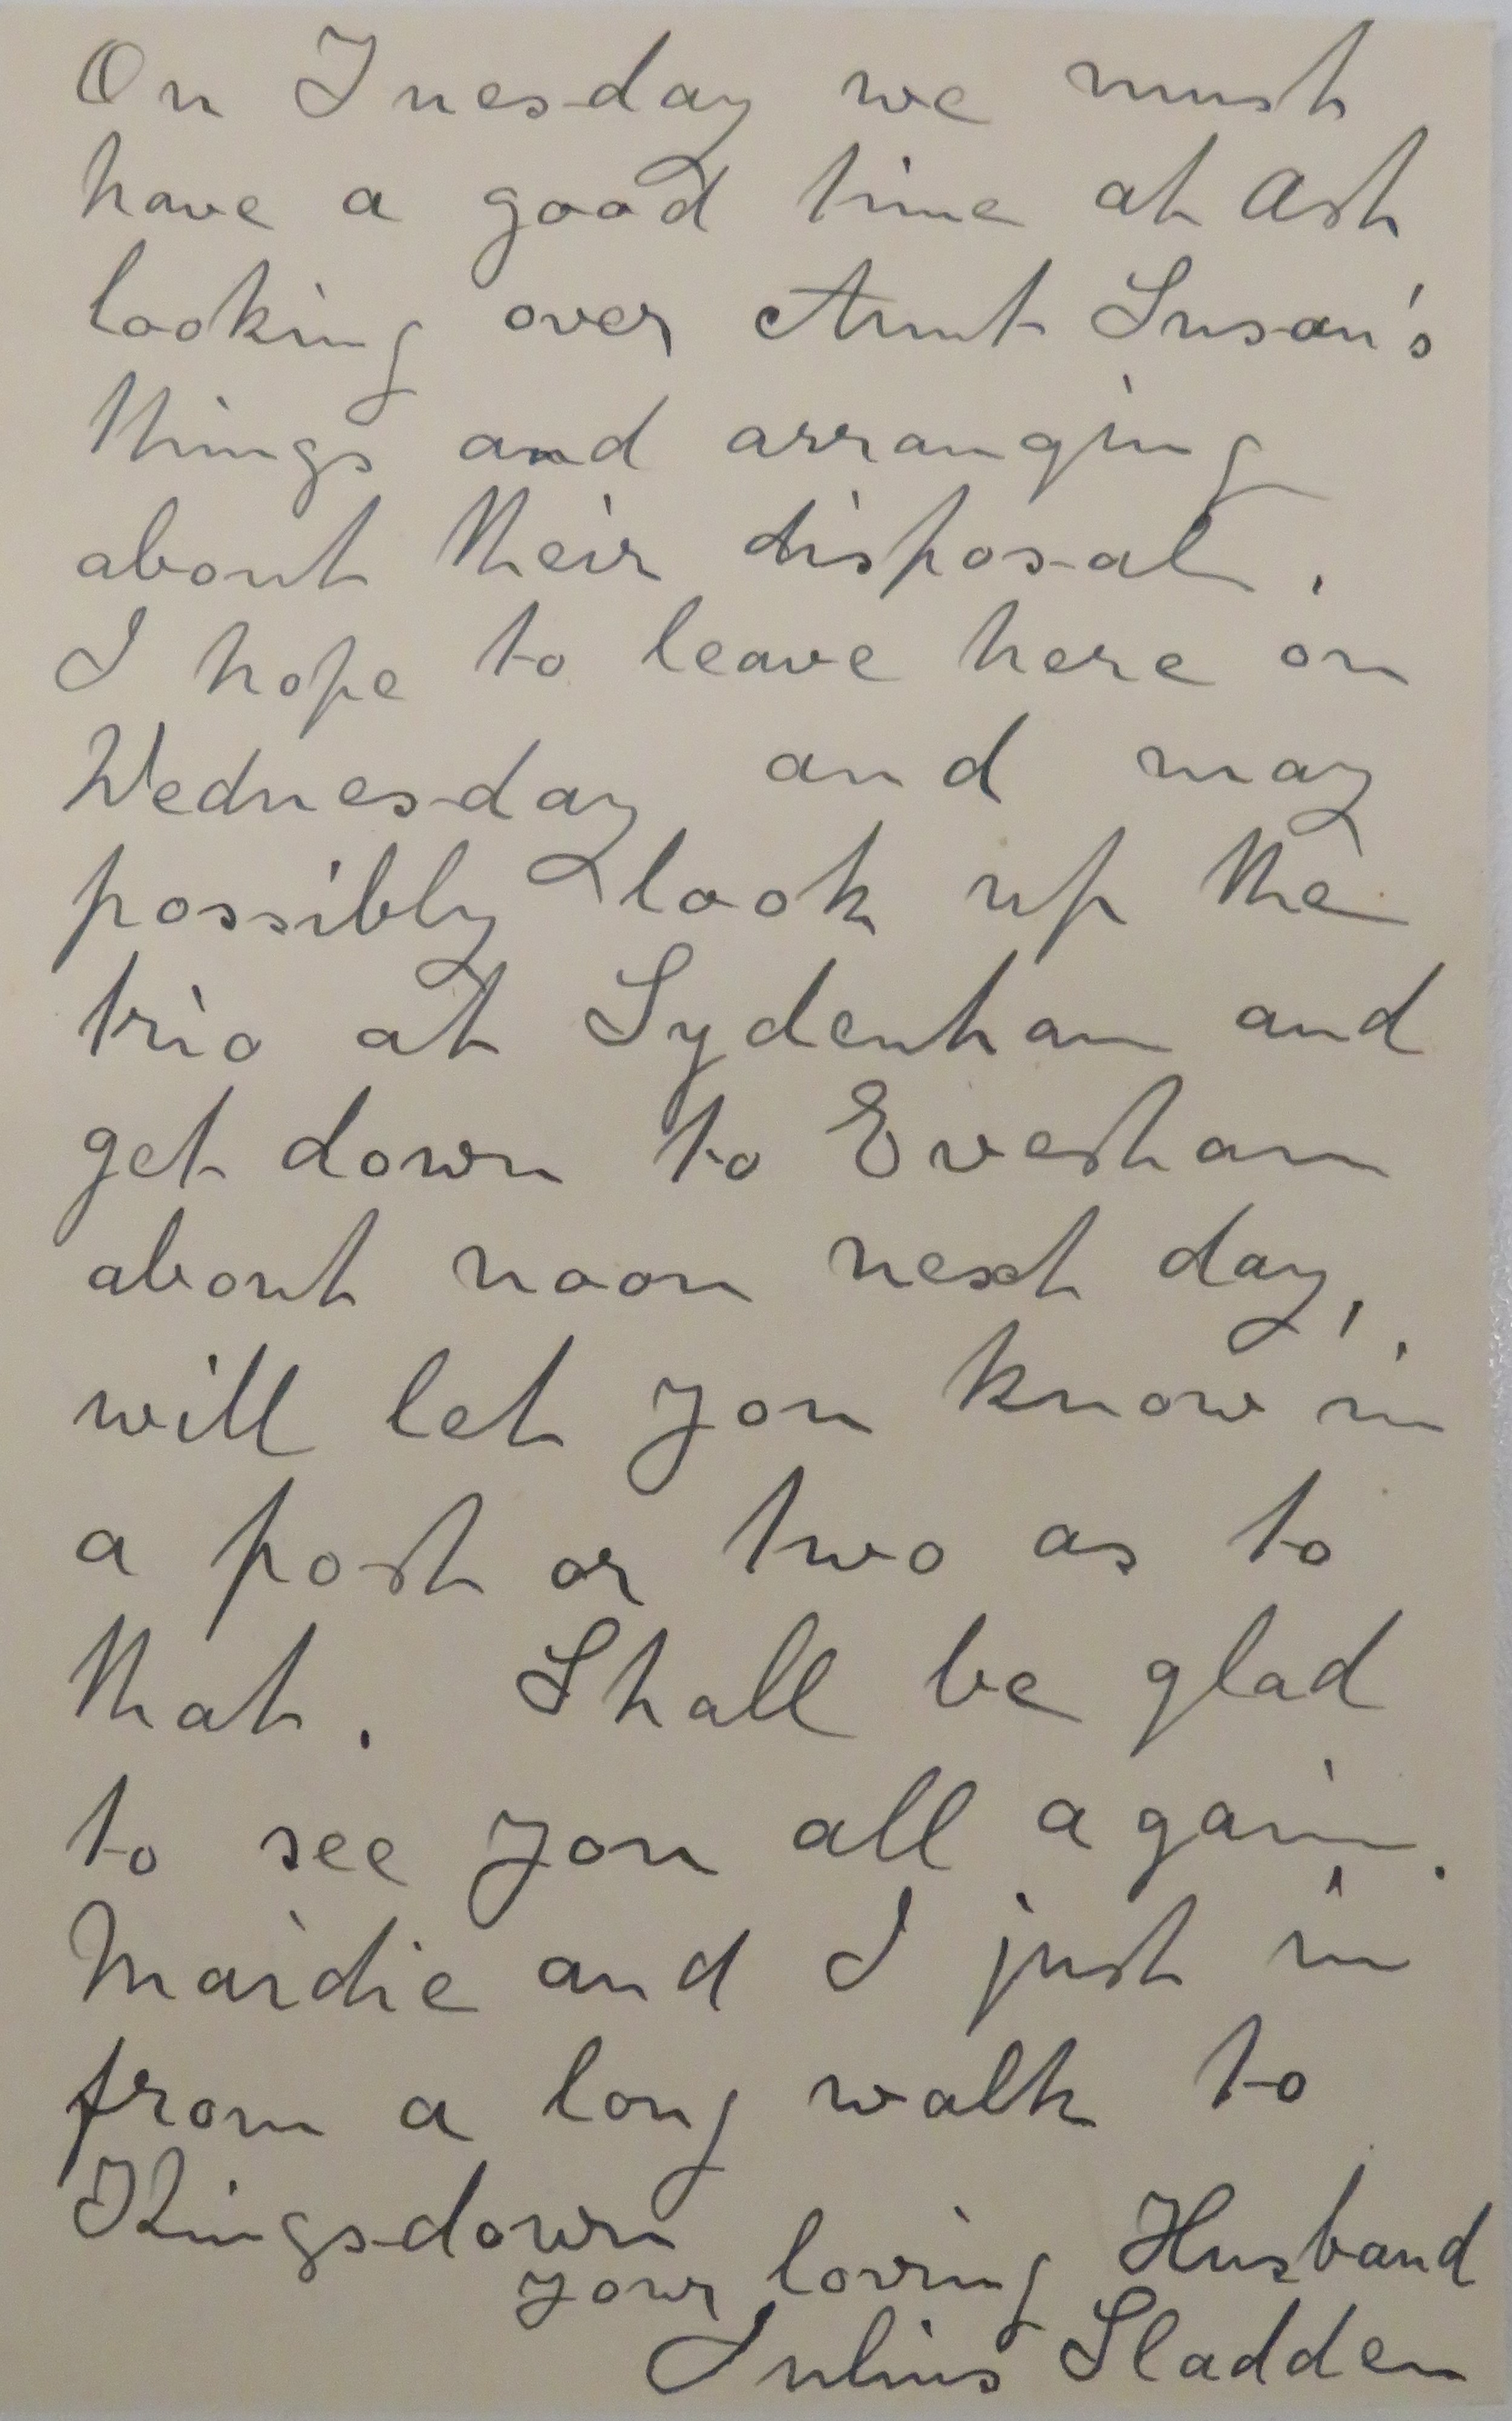 On Tuesday we must
have a good time at Ash
looking over Aunt Susan's
things and arranging
about their disposal.
I hope to leave here on
Wednesday and may
possibly look up the
trio at Sydenham and
get down to Evesham
about noon next day,
will let you know in
a post or two as to
that. Shall be glad
to see you all again.
Mardie and I just in
from a long walk to
Kingsdown
your loving Husband
Julius Sladden